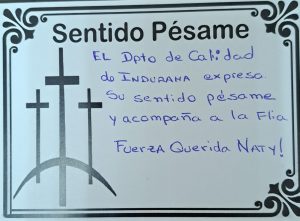 Sentido Pésame
EL Dpto de Calidad
de INDURANA expresa
Su sentido pésame
y acompaña a la Flia
Fuerza Querida NATY!